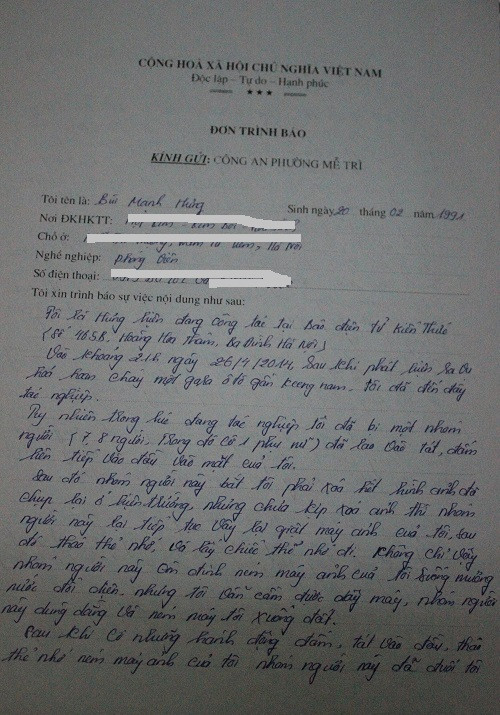 CỘNG HOÀ XÃ HỘI CHỦ NGHĨA VIỆT NAM
Độc lập – Tự do – Hạnh phúc
★★★
ĐƠN TRÌNH BÁO
KÍNH GỬI: CÔNG AN PHƯỜNG MỄ TRÌ
Tôi tên là: Bùi Mạnh Hưng Sinh ngày 20 tháng 02 năm 1991
Nơi ĐKHKTT:
Chỗ ở: Hà Nội
Nghề nghiệp: phóng viên
Số điện thoại:
Tôi xin trình báo sự việc nội dung như sau:
Tôi là Hưng hiện đang công tác tại Báo điện tử Kiến Thức
(Số Hoàng Hoa Thám, Ba Đình Hà Nội)
Vào khoảng 21h ngày 26/4/2014, sau khi phát hiện sự vụ
hoả hoạn cháy một gara ô tô gần keengnam. Tôi đã đến đây
tác nghiệp.
Tuy nhiên trong lúc đang tác nghiệp tôi đã bị một nhóm
người (7, 8 người, trong đó có 1 phụ nữ) đã lao vào tát, đấm
liên tiếp vào đầu vào mặt của tôi.
Sau đó nhóm người này bắt tôi phải xoá hết hình ảnh đã
chụp lại ở hiện trường, nhưng chưa kịp xoá ảnh thì nhóm
người này lại tiếp tục lấy lại giật máy ảnh của tôi, sau
đó tháo thẻ nhớ và lấy chiếc thẻ nhớ đi. Không chỉ vậy
nhóm người này còn định ném máy ảnh của tôi xuống mương
nước đối diện. nhưng tôi vẫn cầm được dây máy, nhóm người
này dùng dằng và ném máy tôi xuống đất.
Sau khi có những hành động đấm, tát vào đầu, tháo
thẻ nhớ ném máy ảnh của tôi nhóm người này đã đuổi tôi